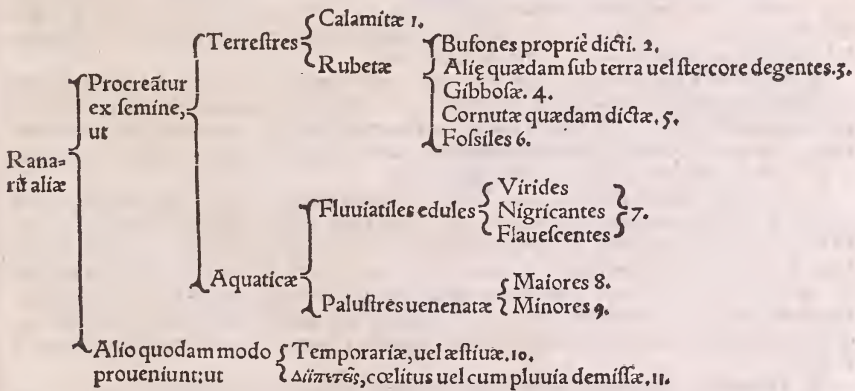 Ranarũ aliæ
Procreãtur ex ſemine, ut
Terreſtres
Calamitæ 1.
Rubetæ
Bufones propriè dicti. 2.
Alię quædam ſub terra uel ſtercore degentes. 3.
Gibboſæ. 4.
Cornutæ quædam dictæ. 5.
Foſsiles 6.
Aquaticæ
Fluuiatiles edules
Virides
Nigricantes
Flaueſcentes
7.
Paluſtres uenenatæ
Maiores 8.
Minores 9.
Alio quodam modo proueniunt: ut
Temporariæ, uel æſtiuæ. 10.
Διϊπετεῖς, cœlitus uel cum pluuia demiſſæ. 11.